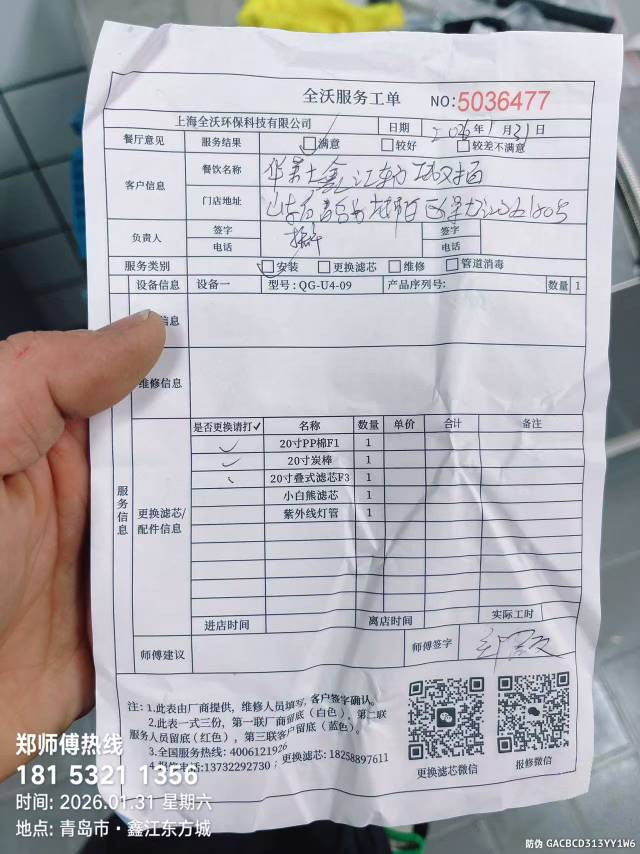 全沃服务工单 NO:5036477
上海全沃环保科技有限公司 日期 2026年1月31日
餐厅意见 服务结果 满意 较好 较差不满意
客户信息 餐饮名称
门店地址
负责人 签字 签字
电话 电话
服务类别 安装 更换滤芯 维修 管道消毒
设备信息 设备一 型号:QG-U4-09 产品序列号: 数量 1
信息
维修信息
服务信息
更换滤芯/配件信息
是否更换请打✓ 名称 数量 单价 合计 备注
✓ 20寸PP棉F1 1
✓ 20寸炭棒 1
20寸叠式滤芯F3 1
小白熊滤芯 1
紫外线灯管 1
进店时间 离店时间 实际工时
师傅建议 师傅签字
注: 1.此表由厂商提供，维修人员填写，客户签字确认。
2.此表一式三份，第一联厂商留底（白色）。第二联
服务人员留底（红色），第三联客户留底（蓝色）。
3.全国服务热线: 4006121926
4.报修电话:13732292730; 更换滤芯: 18258897611
更换滤芯微信
报修微信
郑师傅热线
181 5321 1356
时间: 2026.01.31 星期六
地点: 青岛市·鑫江东方城
防伪 GACBCD313YY1W6